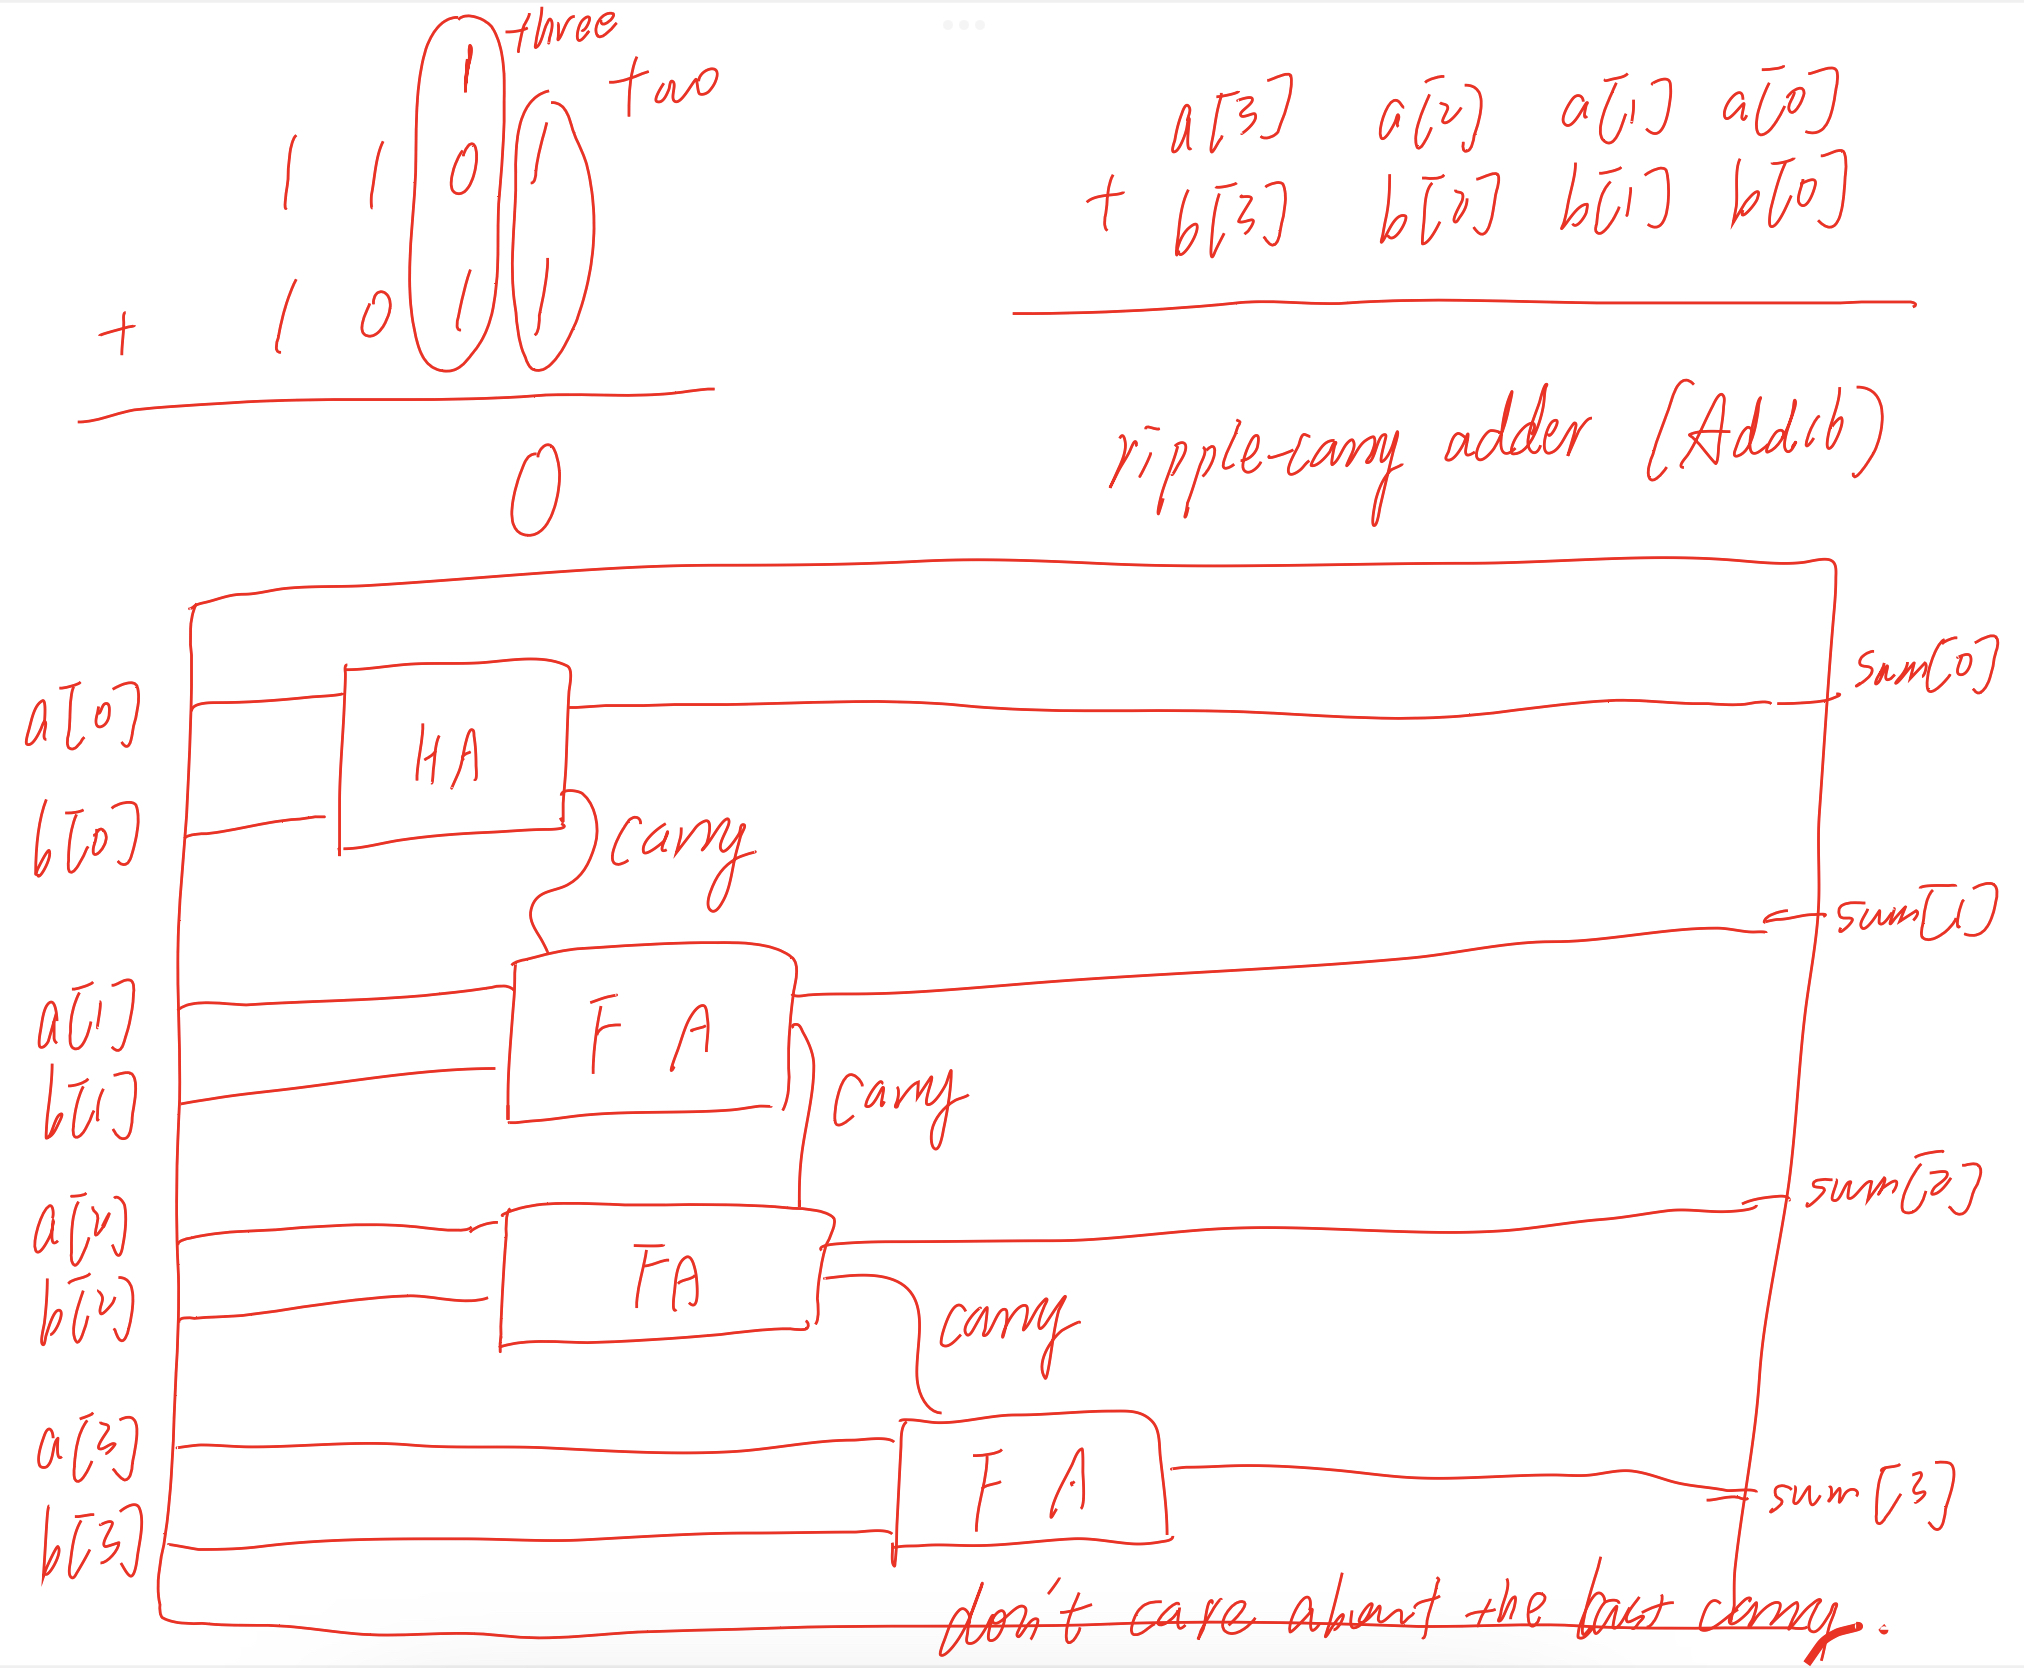 three
two
1
1 1 0 1
+ 1 0 1 1
0
a[3] a[2] a[1] a[0]
+ b[3] b[2] b[1] b[0]
ripple-carry adder (Add16)
a[0]
b[0]
HA
carry
sum[0]
a[1]
b[1]
FA
carry
sum[1]
a[2]
b[2]
FA
carry
sum[2]
a[3]
b[3]
FA
sum[3]
don't care about the last carry.